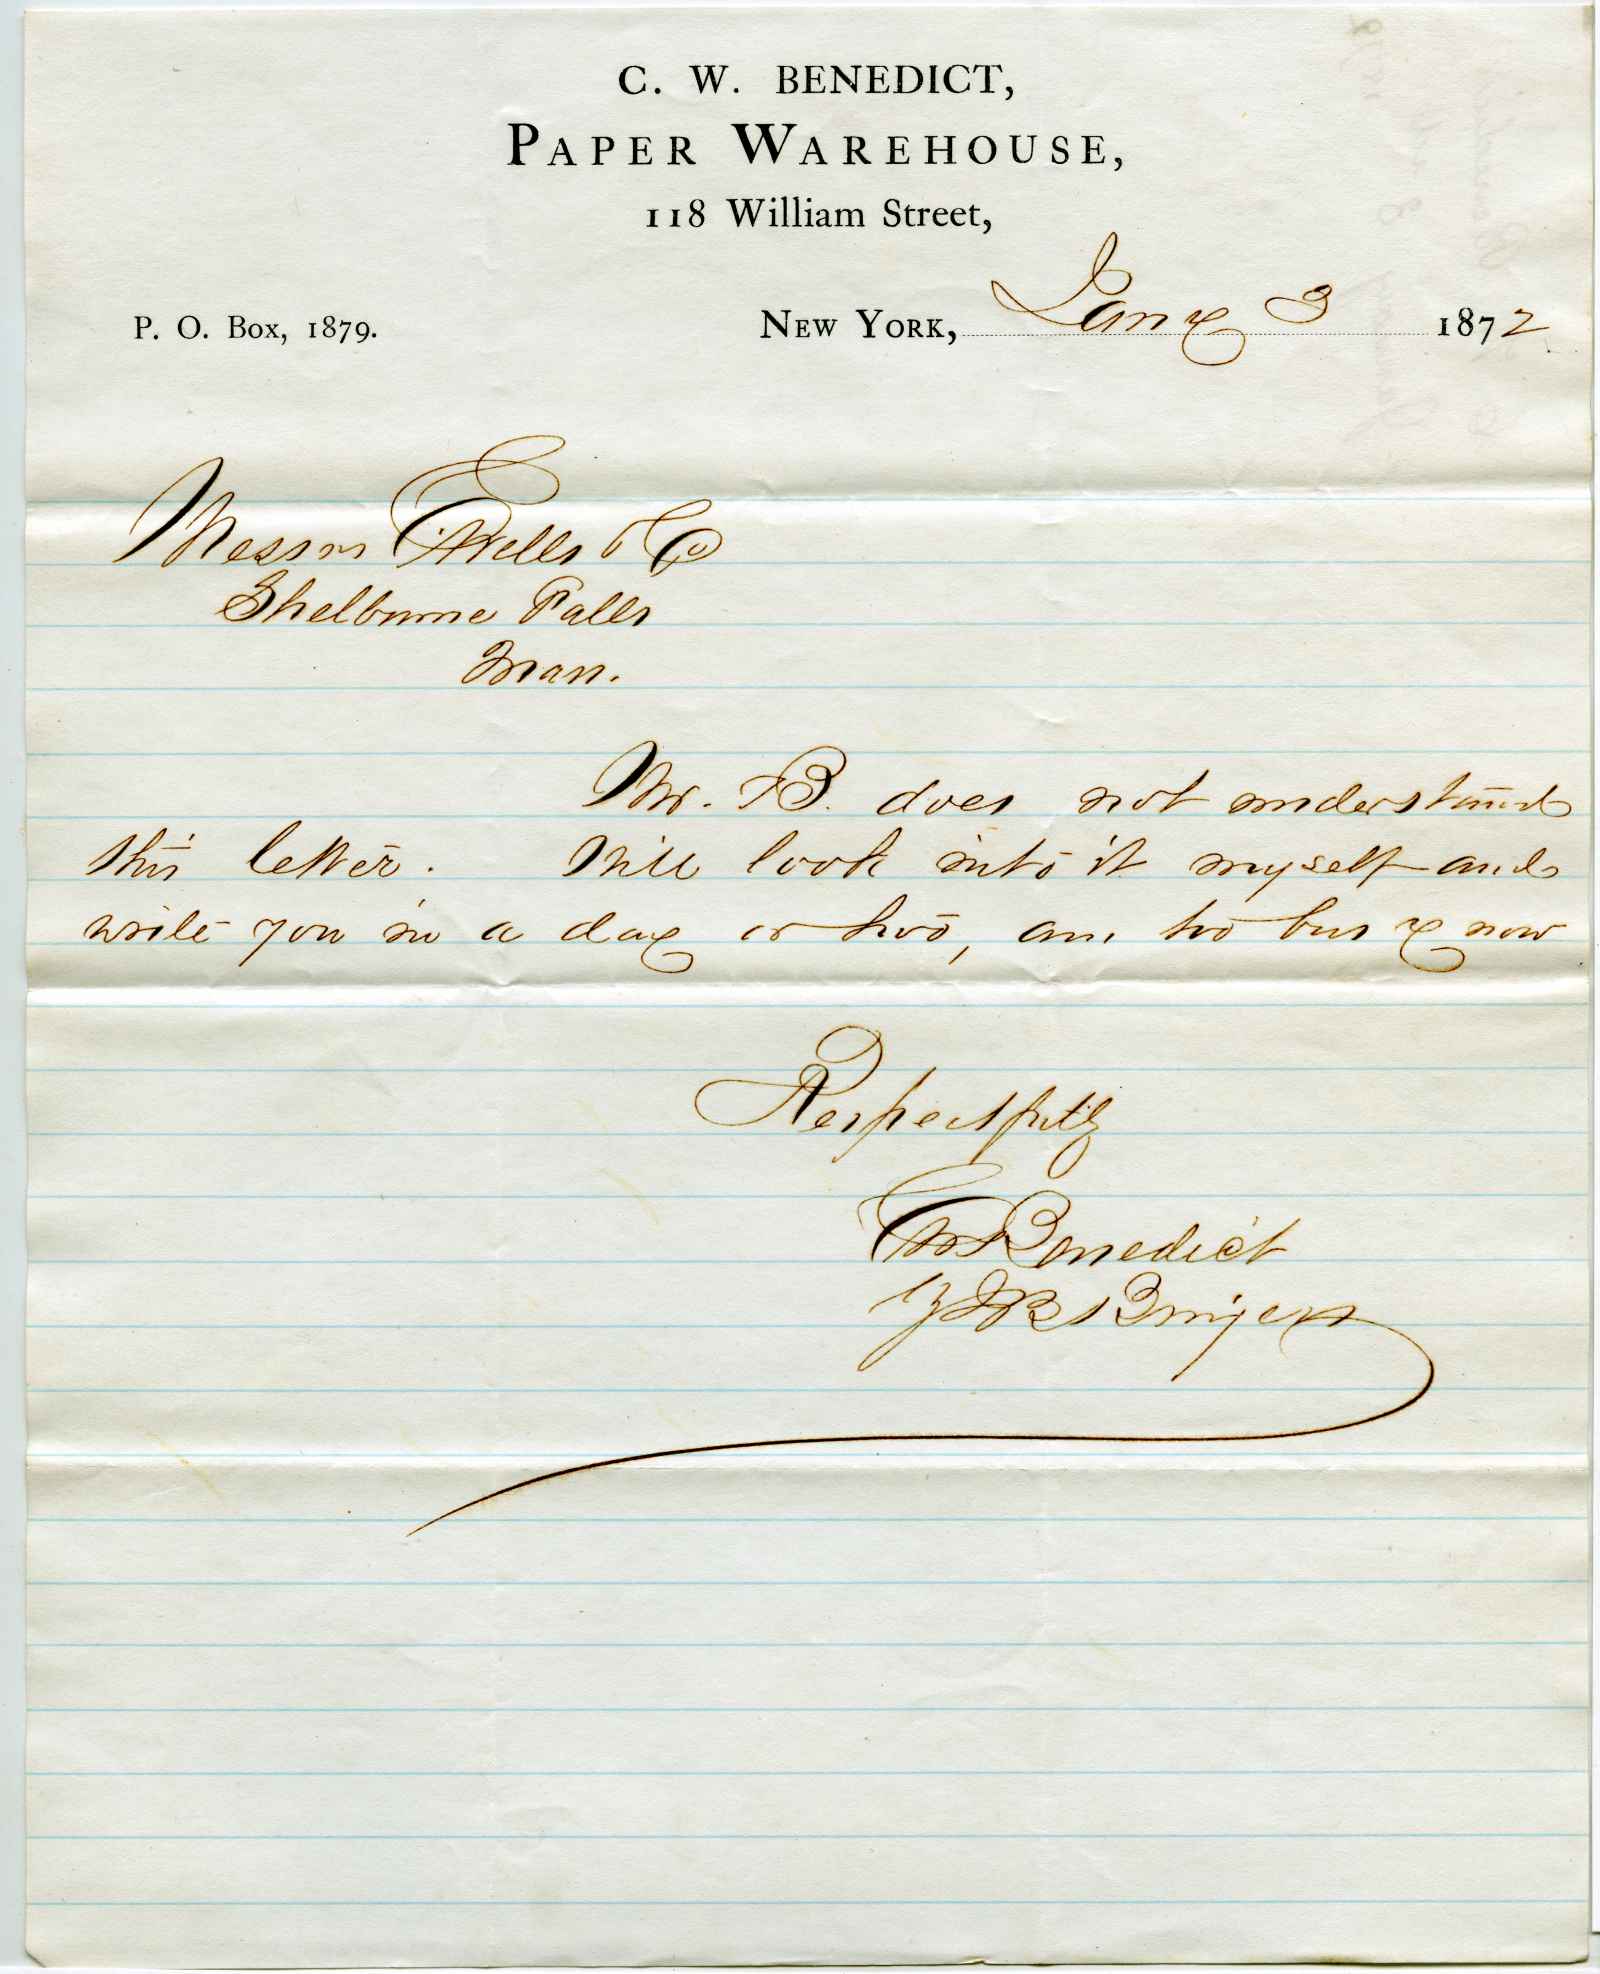 C. W. BENEDICT,
PAPER WAREHOUSE,
118 William Street,
P. O. Box, 1879.
NEW YORK, Jany 3 1872
Messrs Wells & Co
Shelburne Falls
Mass.
Mr. B. does not understand
this letter. Will look into it myself and
write you in a day or two, am too busy now
Respectfully
CW Benedict